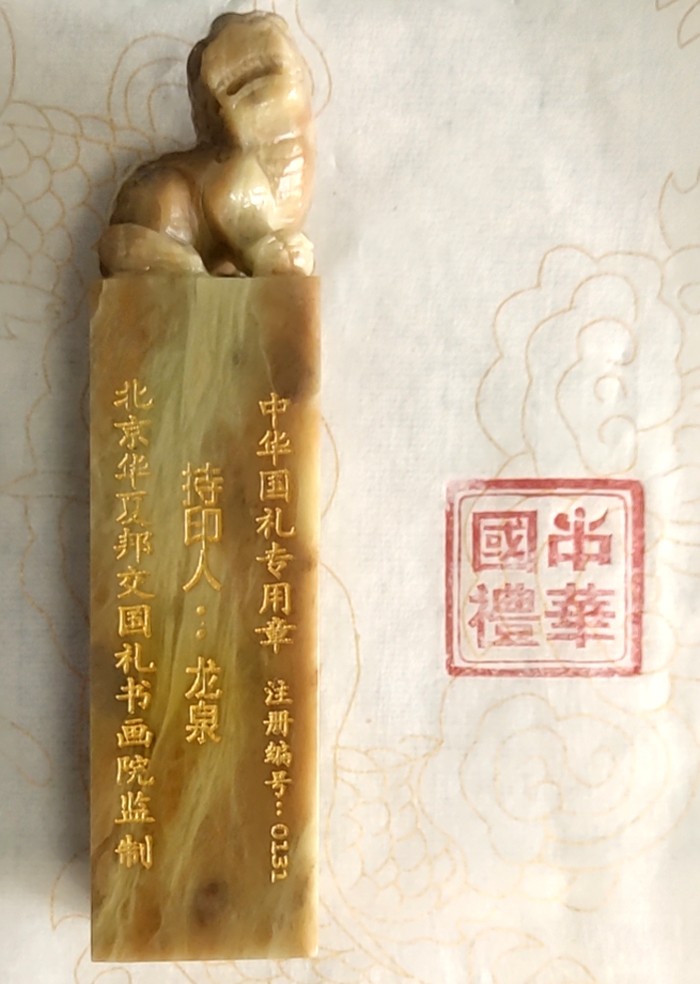 中华国礼专用章 注册编号:0131
持印人:龙泉
北京华夏邦交国礼书画院监制
中華
國禮